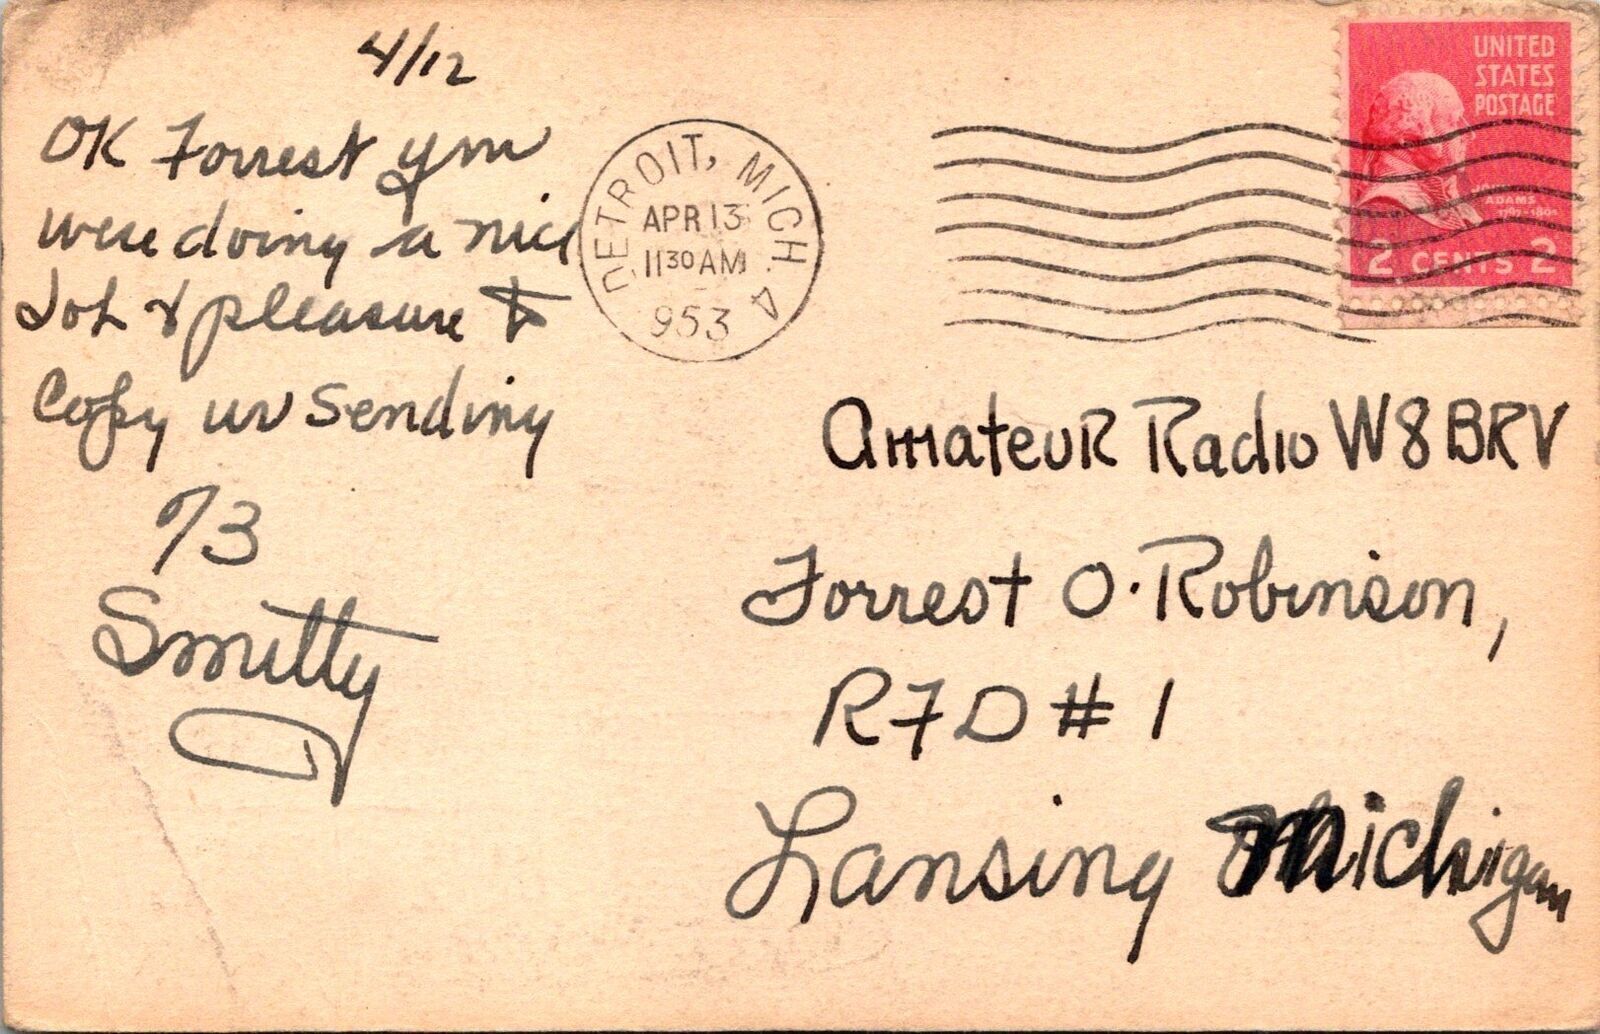 4/12
OK Forrest you
were doing a nice
Job & pleasure to
Copy ur sending
73
Smitty
DETROIT, MICH. 4
APR 13
11 30 AM
953
UNITED
STATES
POSTAGE
ADAMS
2 CENTS 2
Amateur Radio W8BRV
Forrest O. Robinson,
RFD # 1
Lansing Michigan